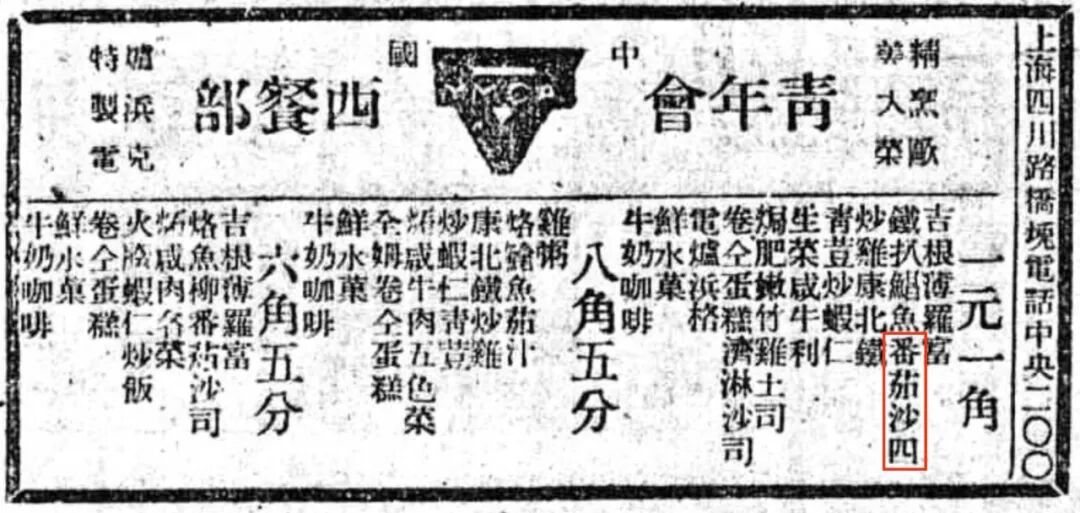 上海四川路橋堍電話中央二〇〇
精烹歐
美大菜
中國
青年會西餐部
特製電
爐浜克
一元一角
吉根薄羅富
鐵扒鯧魚番茄沙四
炒雞康北鐵
青荳炒蝦仁
生菜咸牛利
焗肥嫩竹雞土司
卷仝蛋糕濟淋沙司
電爐浜格
鮮水菓
牛奶咖啡
八角五分
雞粥
烙鯧魚茄汁
康北鐵炒雞
炒蝦仁青荳
燴咸牛肉五色菜
仝姆卷仝蛋糕
鮮水菓
牛奶咖啡
六角五分
吉根薄羅富
烙魚柳番茄沙司
燴咸肉各菜
火腿蝦仁炒飯
卷仝蛋糕
鮮水菓
牛奶咖啡